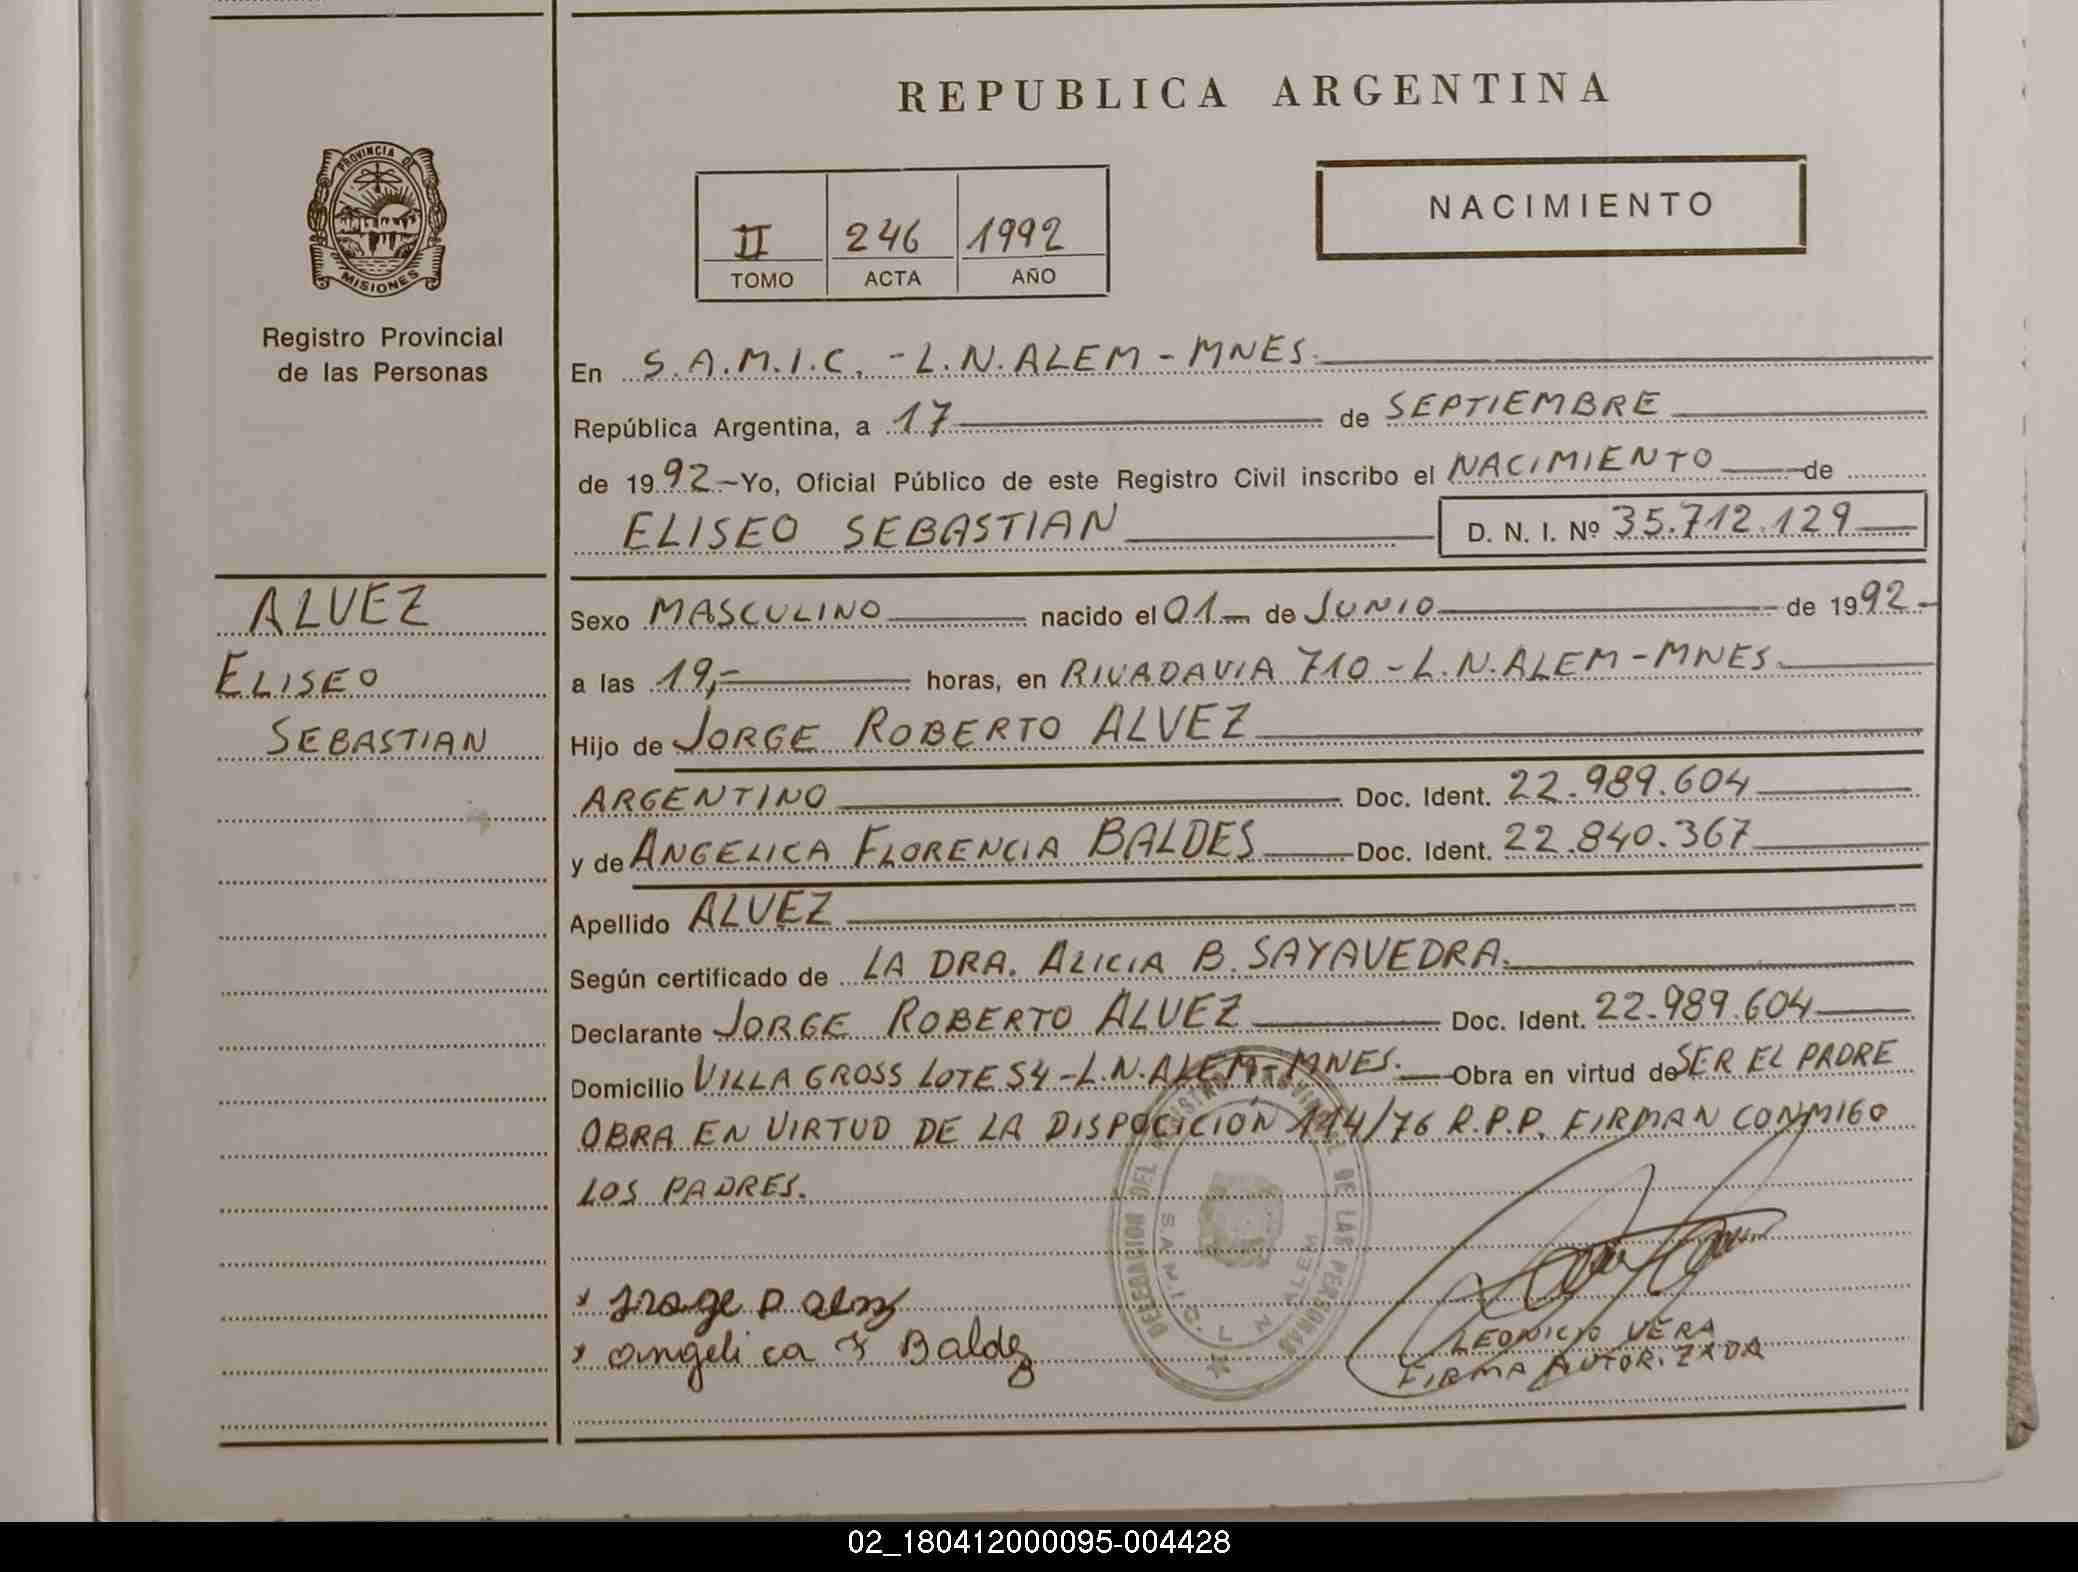 REPUBLICA ARGENTINA
PROVINCIA DE
MISIONES
Registro Provincial
de las Personas
NACIMIENTO
II 246 1992
TOMO ACTA AÑO
En S.A.M.I.C. - L.N.ALEM - MNES.
República Argentina, a 17 de SEPTIEMBRE
de 1992.- Yo, Oficial Público de este Registro Civil inscribo el NACIMIENTO de
ELISEO SEBASTIAN D. N. I. Nº 35.712.129
ALVEZ
ELISEO
SEBASTIAN
Sexo MASCULINO nacido el 01 de JUNIO de 1992.-
a las 19,- horas, en RIVADAVIA 710 - L.N.ALEM - MNES.
Hijo de JORGE ROBERTO ALVEZ
ARGENTINO Doc. Ident. 22.989.604
y de ANGELICA FLORENCIA BALDES Doc. Ident. 22.840.367
Apellido ALVEZ
Según certificado de LA DRA. ALICIA B. SAYAVEDRA.
Declarante JORGE ROBERTO ALVEZ Doc. Ident. 22.989.604
Domicilio VILLA GROSS LOTE 54 - L.N.ALEM - MNES. Obra en virtud de SER EL PADRE
OBRA EN VIRTUD DE LA DISPOCICIÓN 114/76 R.P.P. FIRMAN CONMIGO
LOS PADRES.
DELEGACION DEL REGISTRO PROVINCIAL DE LAS PERSONAS
S A M I C. L N ALEM
x angelica F Baldez
LEONICIO VERA
FIRMA AUTORIZADA
02_180412000095-004428